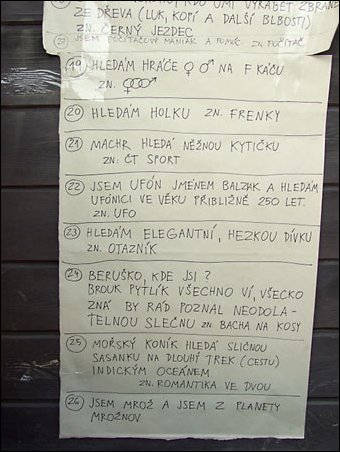 KDO UMÍ VYRÁBĚT ZBRANĚ
ZE DŘEVA (LUK, KOPÍ A DALŠÍ BLBOSTI)
ZN. ČERNÝ JEZDEC
JSEM POČÍTAČOVÝ MANIAK A ZN. POČÍTAČ
19 HLEDÁM HRÁČE ♀ ♂ NA FKÁČU
ZN. ♀♂♂
20 HLEDÁM HOLKU ZN. FRENKY
21 MACHR HLEDÁ NĚŽNOU KYTIČKU
ZN. ČT SPORT
22 JSEM UFÓN JMÉNEM BALZAK A HLEDÁM
UFÓNICI VE VĚKU PŘIBLIŽNĚ 250 LET.
ZN. UFO
23 HLEDÁM ELEGANTNÍ, HEZKOU DÍVKU
ZN. OTAZNÍK
24 BERUŠKO, KDE JSI?
BROUK PYTLÍK VŠECHNO VÍ, VŠECKO
ZNÁ BY RÁD POZNAL NEODOLA-
TELNOU SLEČNU ZN. BACHA NA KOSY
25 MOŘSKÝ KONÍK HLEDÁ SLIČNOU
SASANKU NA DLOUHÝ TREK (CESTU)
INDICKÝM OCEÁNEM.
ZN. ROMANTIKA VE DVOU
26 JSEM MROŽ A JSEM Z PLANETY
MROŽNOV